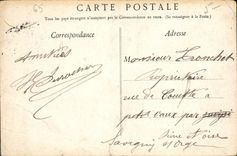 65
5-
CARTE POSTALE
Tous les pays étrangers n'acceptent pas la Correspondance au verso. (Se renseigner à la Poste)
Correspondance
Adresse
Amitiés
Monsieur Tronchet
Propriétaire
rue de
à
petit vaux par
Seine et Oise
Savigny s/ orge